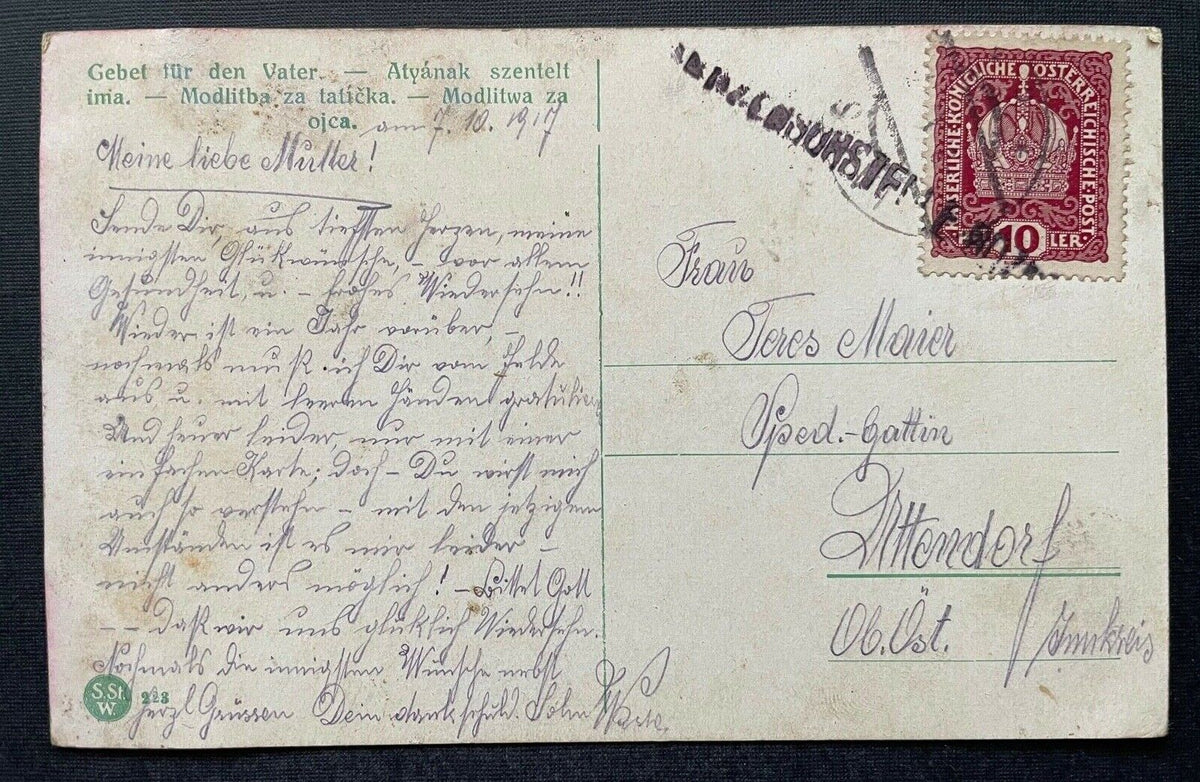 Gebet für den Vater. — Atyának szentelt
ima. — Modlitba za tatíčka. — Modlitwa za
ojca.
am 7. 10. 1917
Meine liebe Mutter!
Sende Dir, aus tiefsten Herzen, meine
innigsten Glükwünsche, – vor allem
Gesundheit, u. – frohes Wiedersehn!!
Wieder ist ein Jahr vorüber, –
nochmals muß ich Dir vom Felde
aus u. mit leeren Händen gratulier
Und heuer leider, nur mit einer
einfachen Karte; doch – Du wirst mich
auch so verstehn – mit den jetzigen
Umständen ist es mir leider –
nicht anders möglich! – Bittet Gott
– – daß wir uns glüklich Wiedersehn.
Nochmals die innigsten Wünsche nebst
herzl. Grüssen Dein dankschuld. Sohn
S.St.
W
223
KAISERLICHE KÖNIGLICHE ÖSTERREICHISCHE POST
10 HELLER
Frau
Teres Maier
Sped.-Gattin
Uttendorf
Ob. Öst. Innkreis